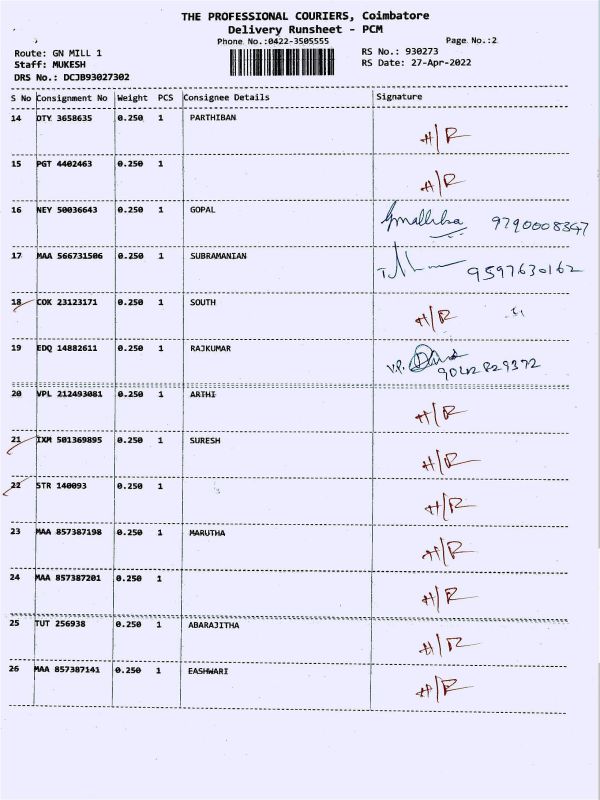 THE PROFESSIONAL COURIERS, Coimbatore
Delivery Runsheet - PCM
Phone No.:0422-3505555 Page No.:2
Route: GN MILL 1 RS No.: 930273
Staff: MUKESH RS Date: 27-Apr-2022
DRS No.: DCJB93027302
S No Consignment No Weight PCS Consignee Details Signature
14 DTY 3658635 0.250 1 PARTHIBAN
H/R
15 PGT 4402463 0.250 1
H/R
16 NEY 50036643 0.250 1 GOPAL
Gmallika 9790008347
17 MAA 566731506 0.250 1 SUBRAMANIAN
9597630162
18 COK 23123171 0.250 1 SOUTH
H/R
19 EDQ 14882611 0.250 1 RAJKUMAR
V.P. 9042829372
20 VPL 212493081 0.250 1 ARTHI
H/R
21 IXM 501369895 0.250 1 SURESH
H/R
22 STR 140093 0.250 1
H/R
23 MAA 857387198 0.250 1 MARUTHA
H/R
24 MAA 857387201 0.250 1
H/R
25 TUT 256938 0.250 1 ABARAJITHA
H/R
26 MAA 857387141 0.250 1 EASHWARI
H/R